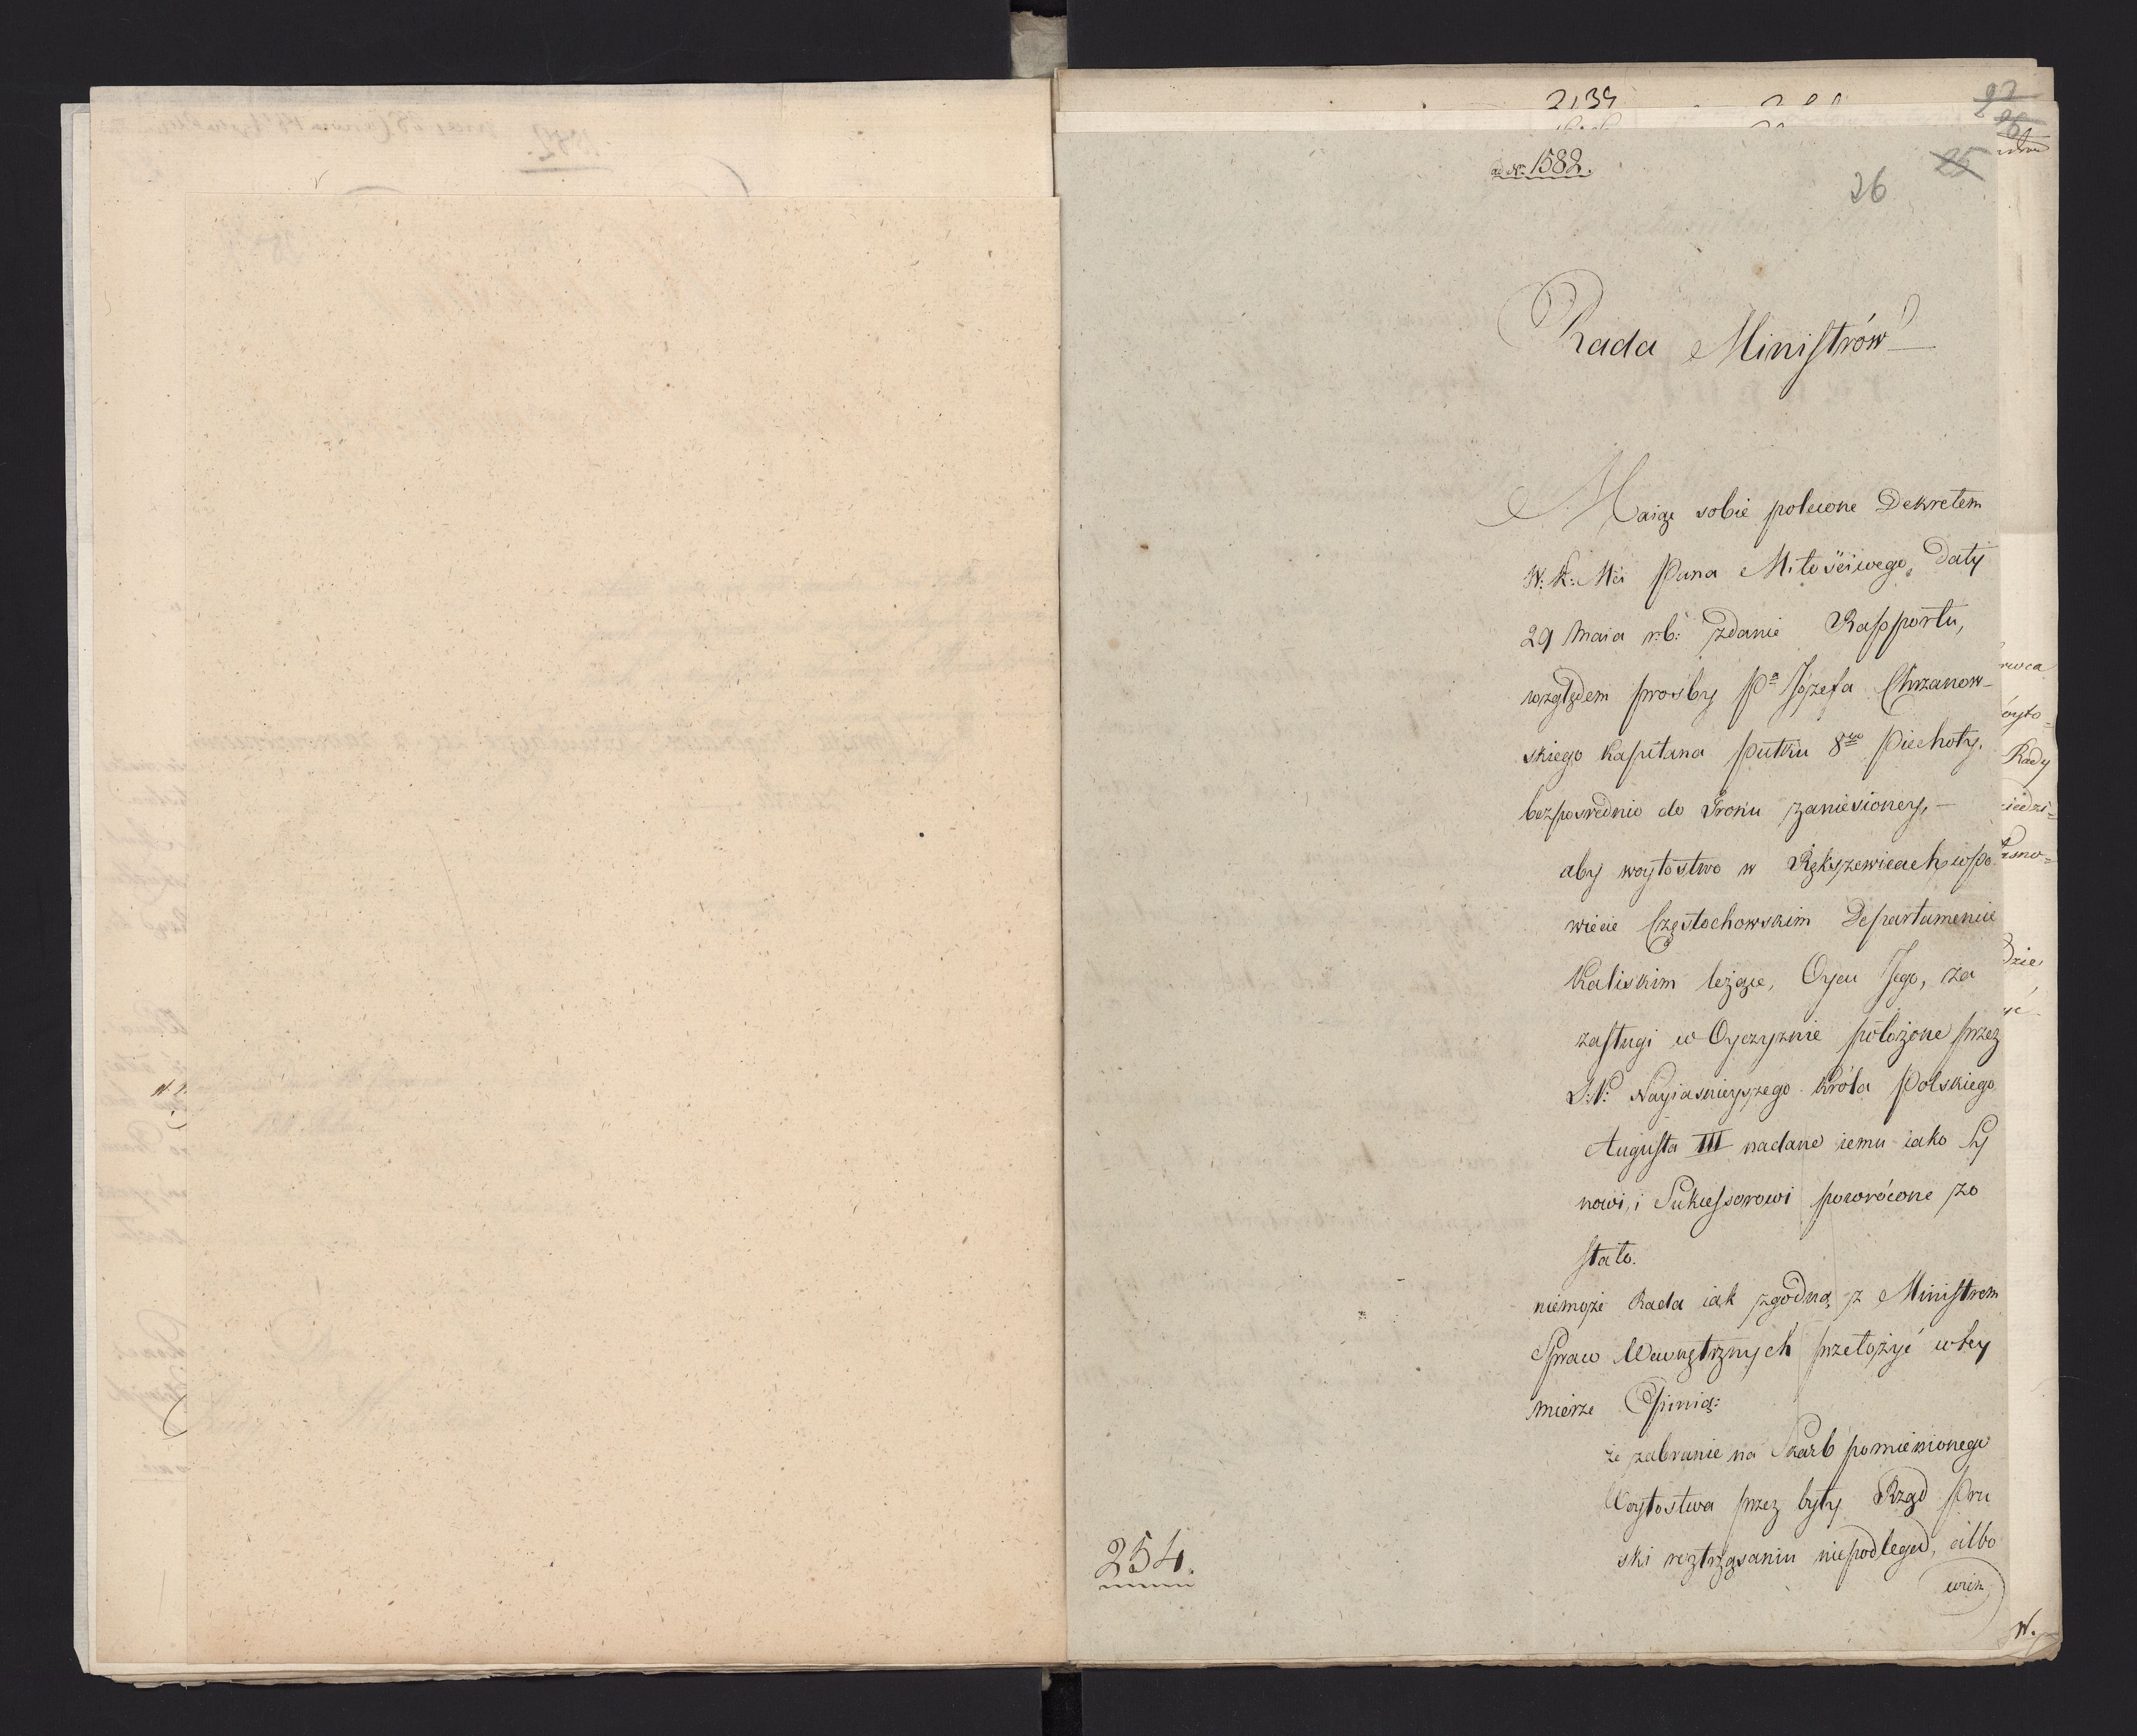 2139
ad Nr. 1582.
25
26
Rada Ministrów
Maiąc sobie polecone Dekretem
W: K: Mći Pana Miłościwego, Daty
29 Maia r: b: zdanie Rapportu,
względem prośby Pa Józefa Chrzanow-
skiego Kapitana Pułku 8go Piechoty,
bezpośrednio do Tronu zaniesioney, —
aby woytostwo w Rększewicach w Po
wiecie Częstochowskim Departamencie
Kaliskim leżące, Oycu Jego, za
zasługi w Oyczyznie położone przez
S: N: Nayiasnieyszego Króla Polskiego
Augusta III nadane iemu iako Sy
nowi, i Sukcessorowi powrócone zo
stało.
niemoże Rada iak zgodną z Ministrem
Spraw Wewnętrznych przełożyć w tey
mierze Opinią:
że zabranie na Skarb pomienionego
Woytostwa przez były Rząd Pru
ski roztrząsaniu niepodlega, albo
wiem
254.
rwca
oyto=
Rady
iedzi=
dzie
W.